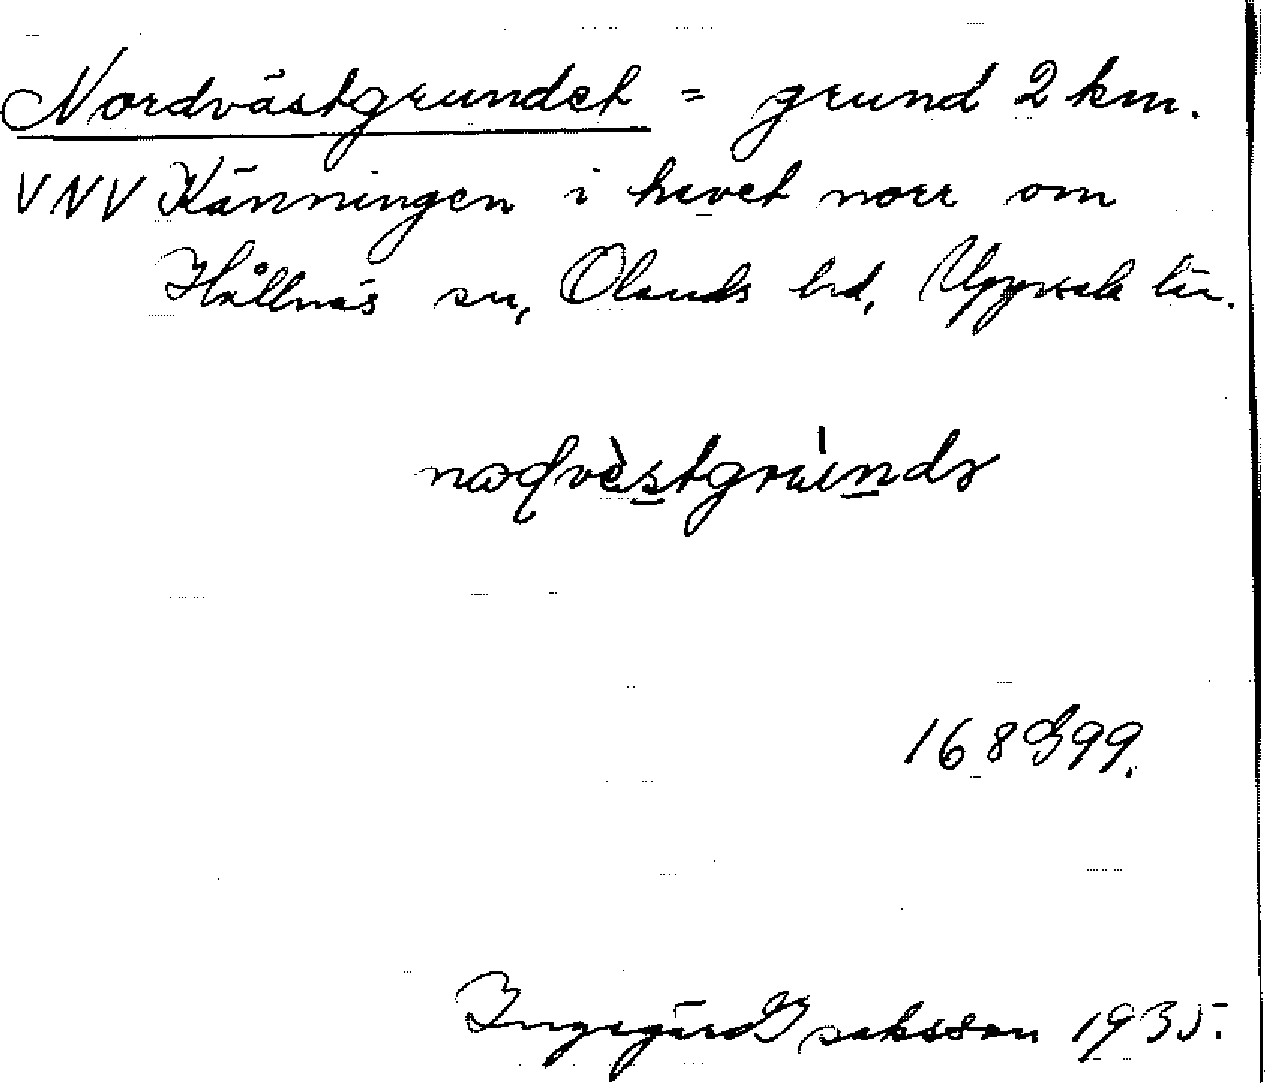 Nordvästgrundet = grund 2 km.
VNV Känningen i havet norr om
Hållnäs sn, Olands hd, Uppsala län.
168 G 99.
Ingegärd Isaksson 1935.